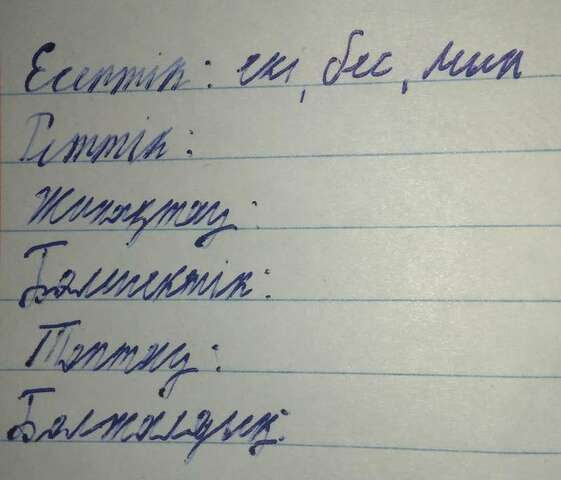 Есептік: екі, бес, мың
Реттік:
Жинақтау:
Бөлшектік:
Топтау:
Болжалдық: